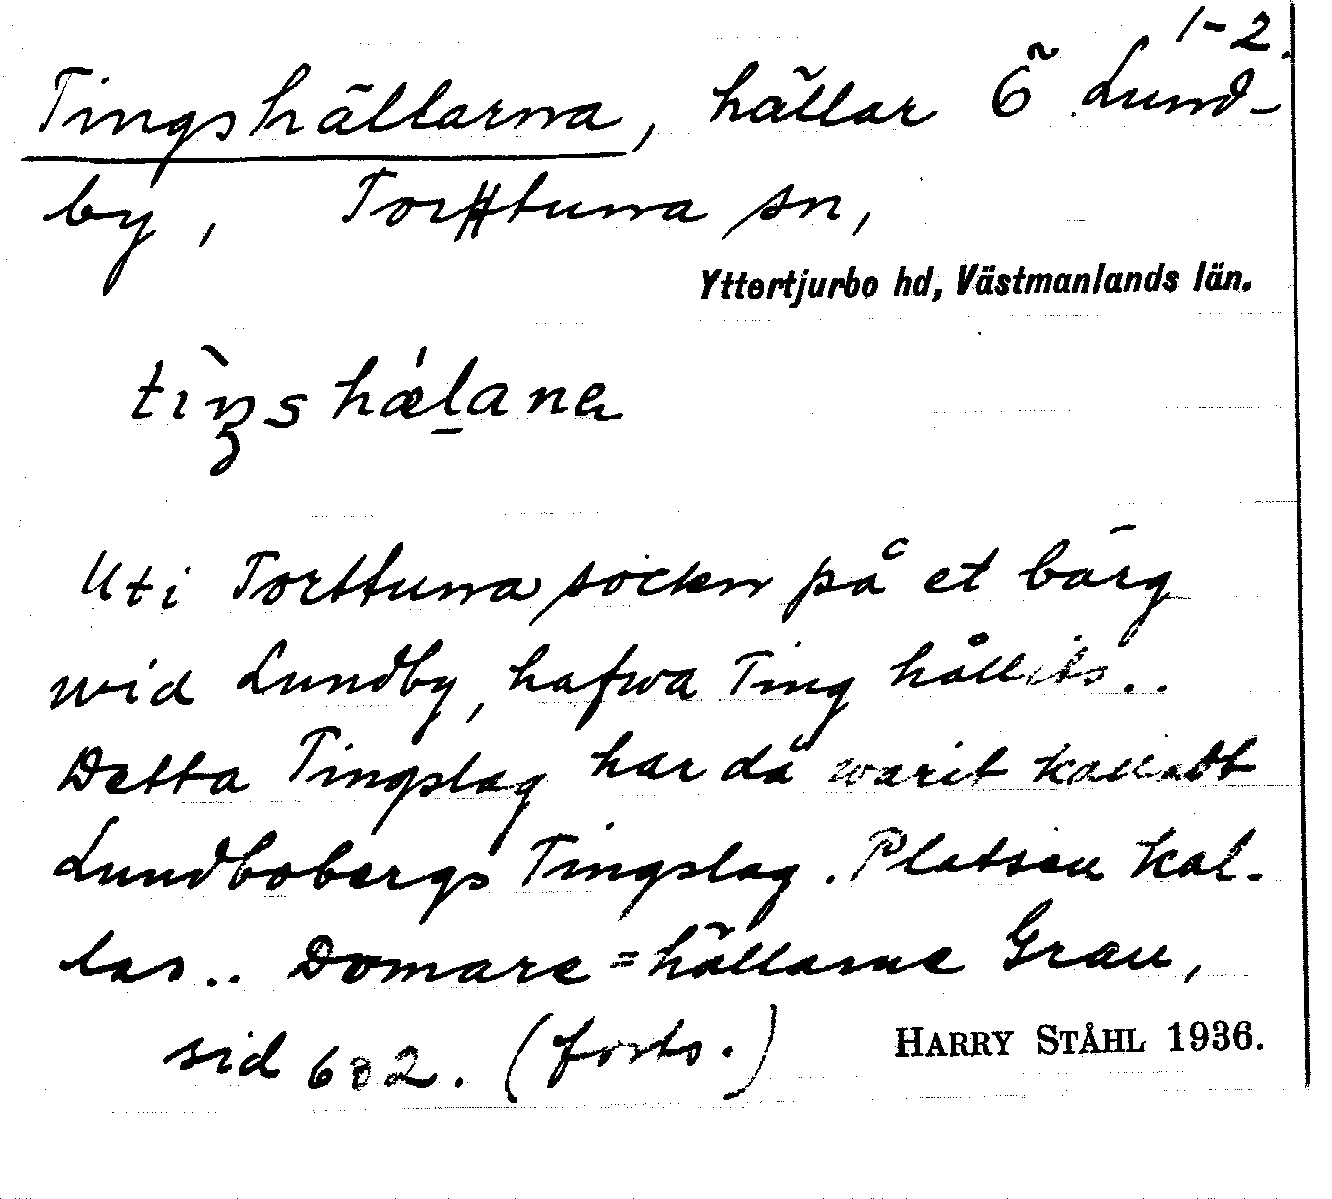 1-2.
Tingshällarna, hällar Ö Lund-
by, Torttuna sn,
Yttertjurbo hd, Västmanlands län.
Uti Torttuna socken på et bärg
wid Lundby, hafwa Ting hållits..
Detta Tingslag har då warit kalladt
Lundbobergs Tingslag. Platsen kal-
las.. Domare=hällarne Grau,
sid 602. (forts.)
HARRY STÅHL 1936.